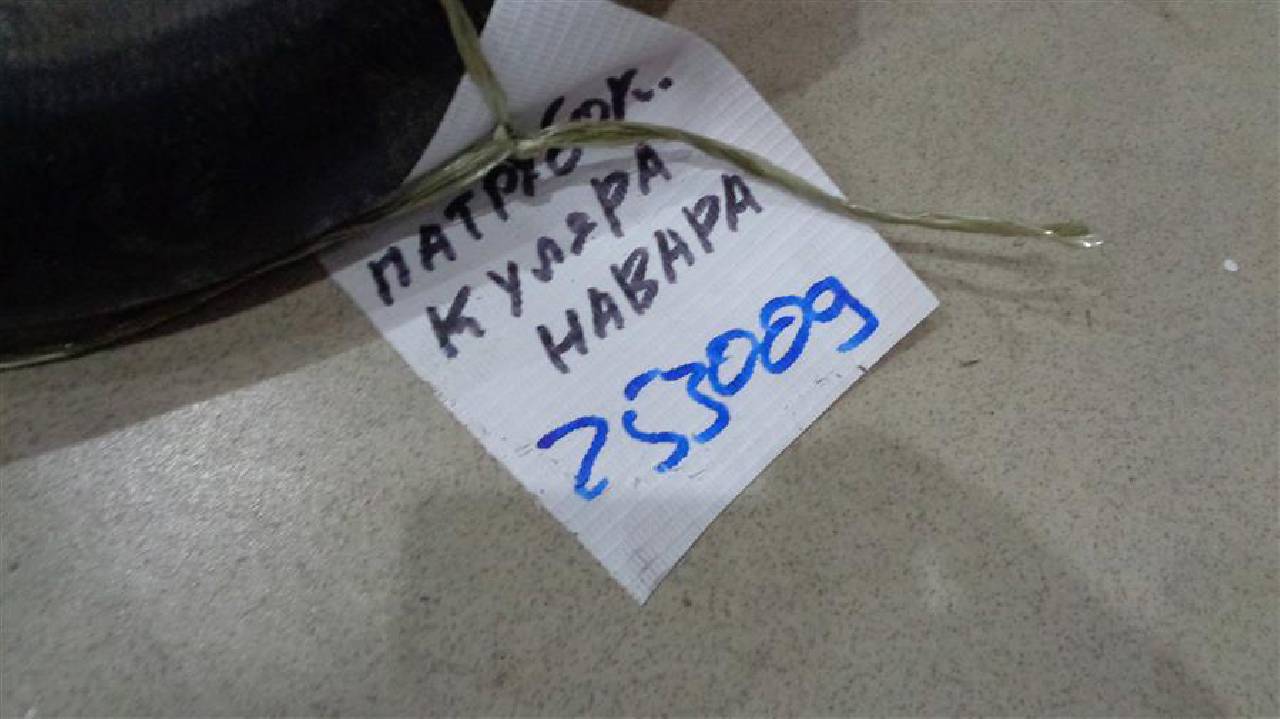 ПАТРУБОК.
КУЛЯРА
НАВАРА
253009